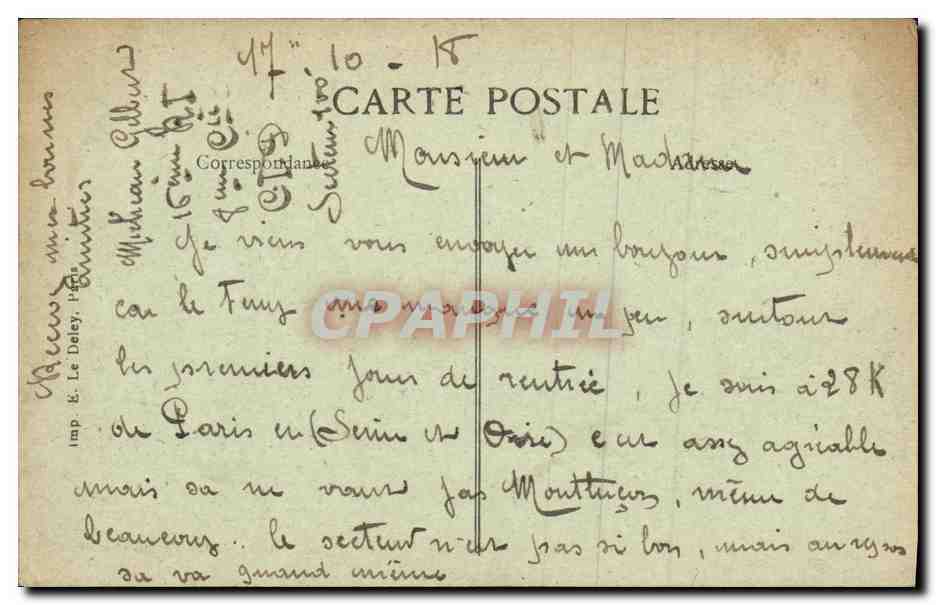 17" 10 - 18
CARTE POSTALE
Correspondance
Adresse
Monsieur et Madame
Je viens vous envoyer un bonjour, simplement
car le temps me manque un peu, surtout
les premiers jours de rentrée, je suis à 28 K
de Paris en (Seine et Oise) c'est assez agréable
mais sa ne vaut pas Montluçon, même de
beaucoup.. le secteur n'est pas si bon, mais au repos
sa va quand même
Recevez mes bonnes
amitiés
Gilbert
16ème
7ème Cie
Secteur
Imp. E. Le Deley, Paris
CPAPHIL